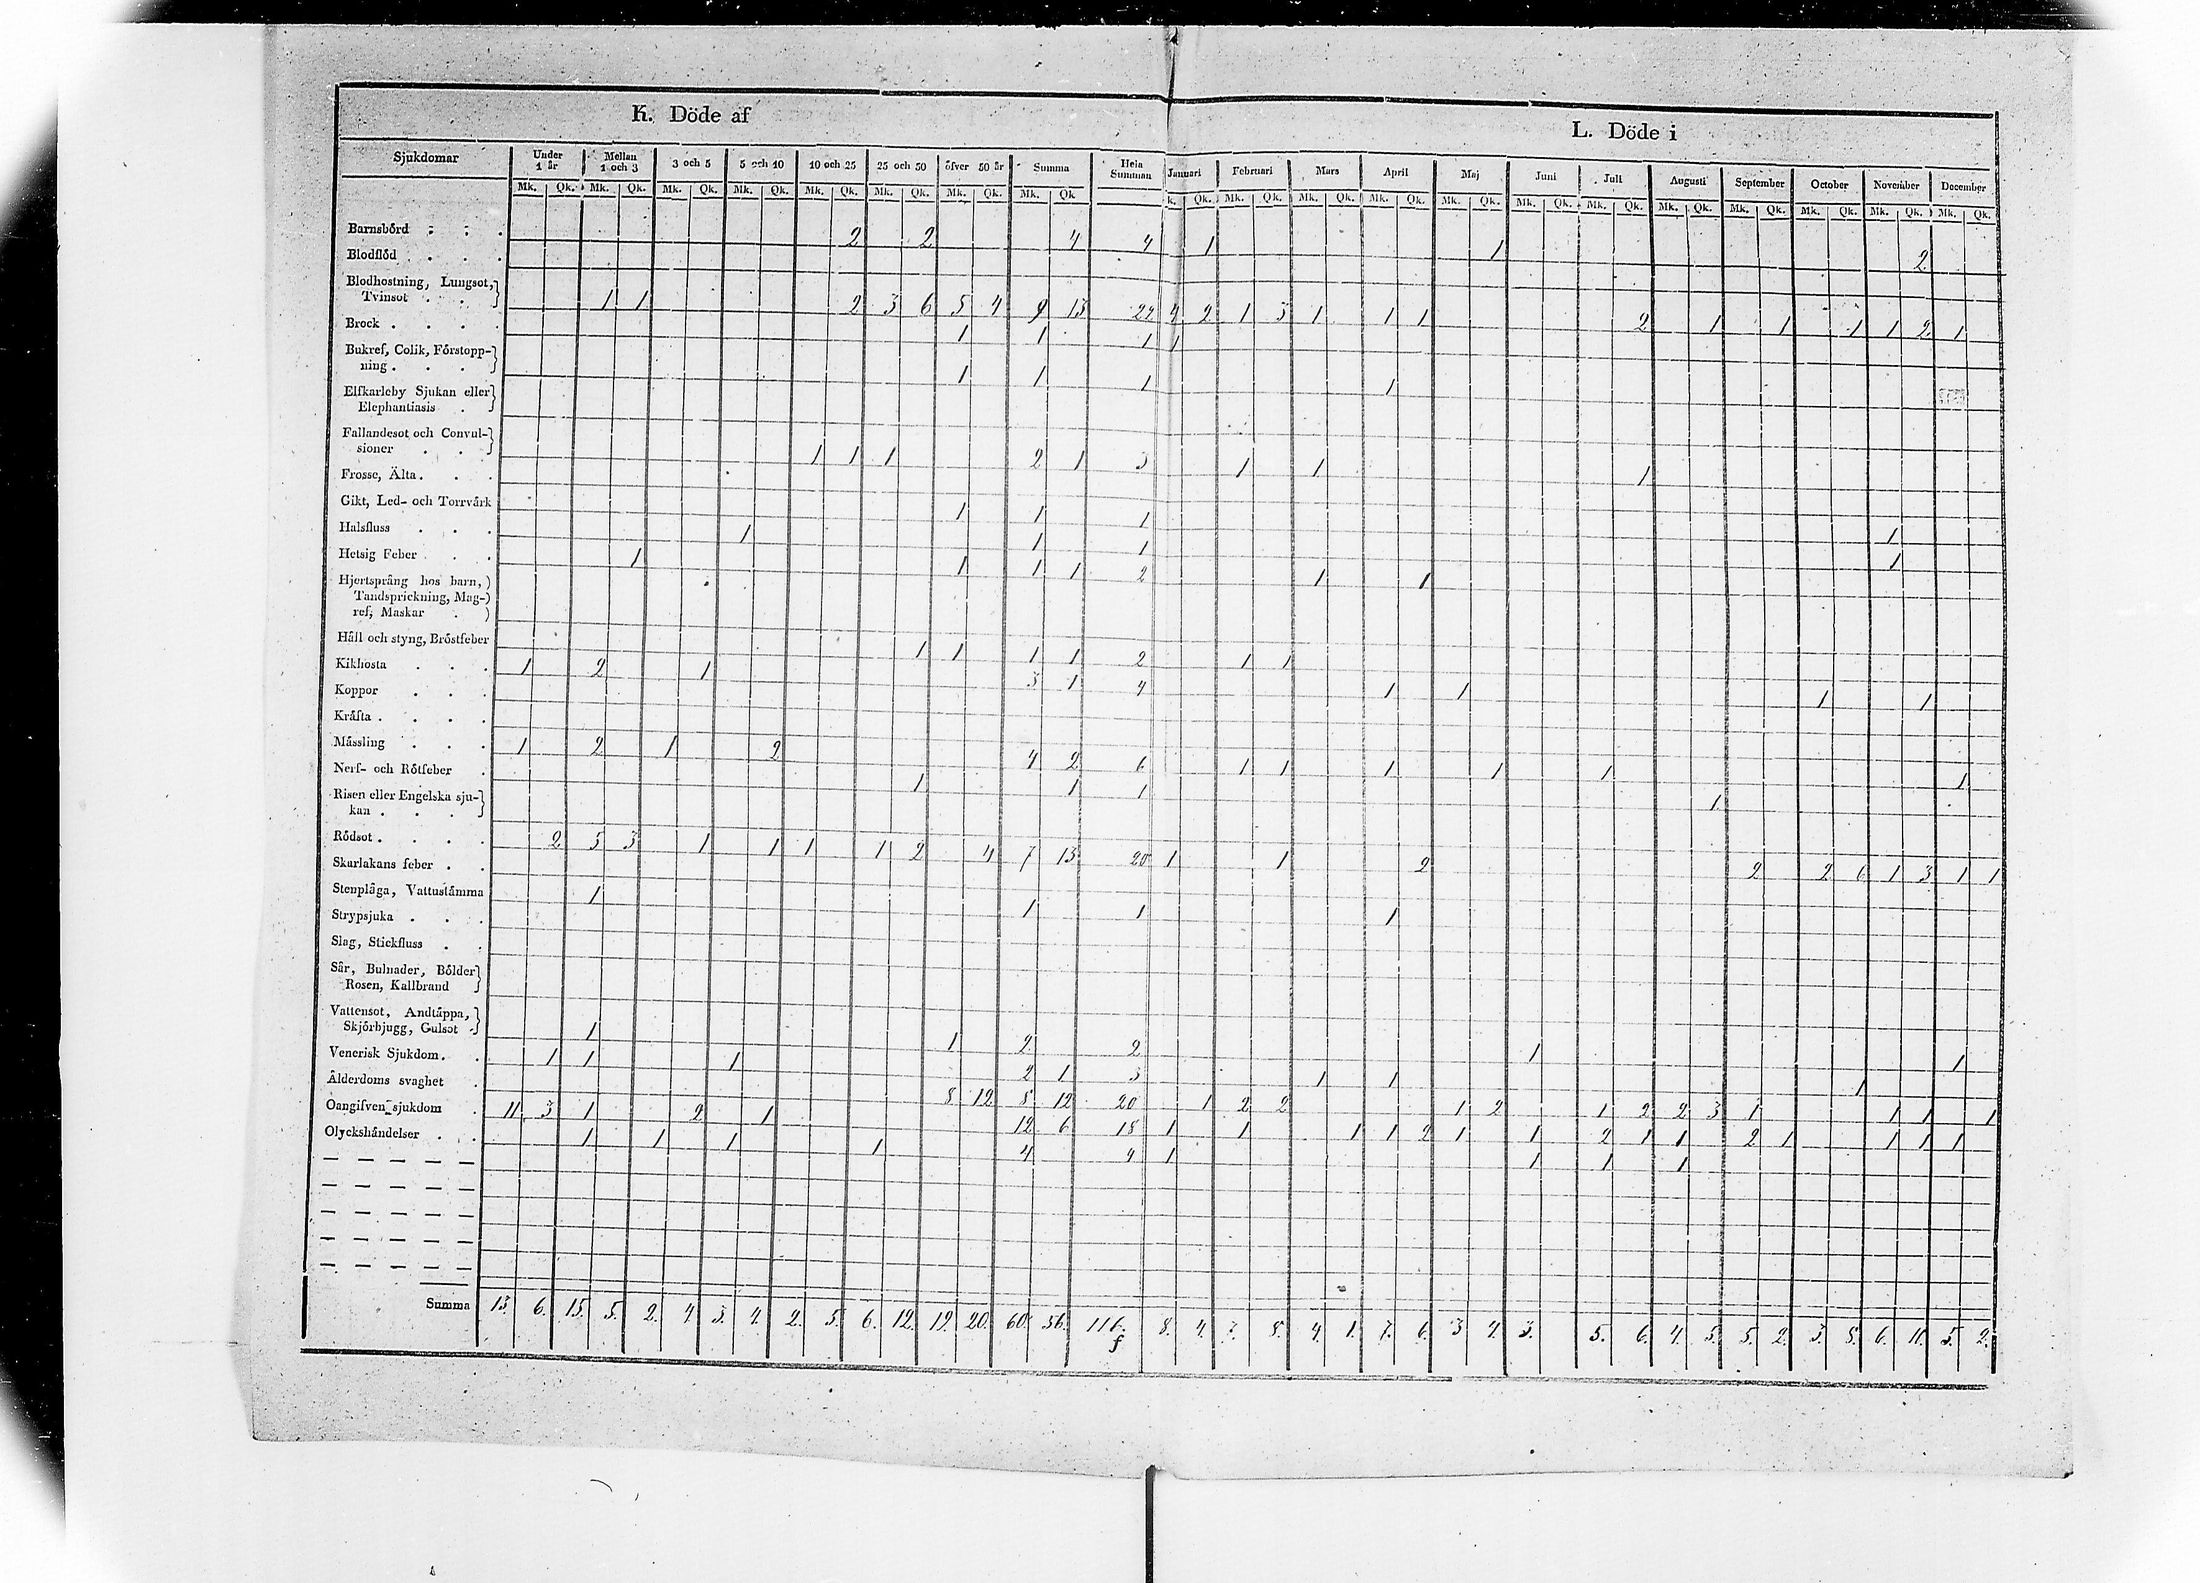 K. Döde af
L. Döde i
Sjukdomar Under 1 år Mellan 1 och 3 3 och 5 5 och 10 10 och 25 25 och 50 öfver 50 år Summa Hela Summan Januari Februari Mars April Maj Juni Juli Augusti September October November December
Mk. Qk. Mk. Qk. Mk. Qk. Mk. Qk. Mk. Qk. Mk. Qk. Mk. Qk. Mk. Qk k. Qk. Mk. Qk. Mk. Qk. Mk. Qk. Mk. Qk. Mk. Qk. Mk. Qk. Mk. Qk. Mk. Qk. Mk. Qk. Mk. Qk. Mk. Qk.
Barnsbörd 2 2 4 4 1 1 2
Blodflöd
Blodhostning, Lungsot,
Tvinsot 1 1 2 3 6 5 4 9 13 22 4 2 1 3 1 1 1 2 1 1 1 1 2 1
Brock 1 1 1 1
Bukref, Colik, Förstopp-
ning 1 1 1 1
Elfkarleby Sjukan eller
Elephantiasis
Fallandesot och Convul-
sioner 1 1 1 2 1 3 1 1 1
Frosse, Älta
Gikt, Led- och Torrvärk 1 1 1 1
Halsfluss 1 1 1 1
Hetsig Feber 1 1 1 1 2 1 1
Hjertsprång hos barn,
Tandsprickning, Mag-
ref, Maskar
Håll och styng, Bröstfeber 1 1 1 1 2 1 1
Kikhosta 1 2 1 3 1 4 1 1 1 1
Koppor
Kräfta
Mässling 1 2 1 2 4 2 6 1 1 1 1 1 1
Nerf- och Rötfeber 1 1 1 1
Risen eller Engelska sju-
kan
Rödsot 2 5 3 1 1 1 1 2 4 7 13 20 1 1 2 2 2 6 1 3 1 1
Skarlakans feber
Stenplåga, Vattustämma 1 1 1 1
Strypsjuka
Slag, Stickfluss
Sår, Bulnader, Bölder
Rosen, Kallbrand
Vattensot, Andtäppa,
Skjörbjugg, Gulsot 1 1 2 2 1 1
Venerisk Sjukdom 1 1 1 2 1 3 1 1 1
Ålderdoms svaghet 8 12 8 12 20 1 2 2 1 2 1 2 2 3 1 1 1 1
Oangifven sjukdom 11 3 1 2 1 12 6 18 1 1 1 1 2 1 1 2 1 1 2 1 1 1 1
Olyckshändelser 1 1 1 1 4 4 1 1 1 1
Summa 13. 6. 15. 5. 2. 4 3. 4. 2. 5. 6. 12. 19. 20. 60. 56. 116. 8. 4. 7. 8. 4. 1. 7. 6. 3 4. 3. 5. 6. 4. 5. 5. 2. 3. 8. 6. 11. 5. 2.